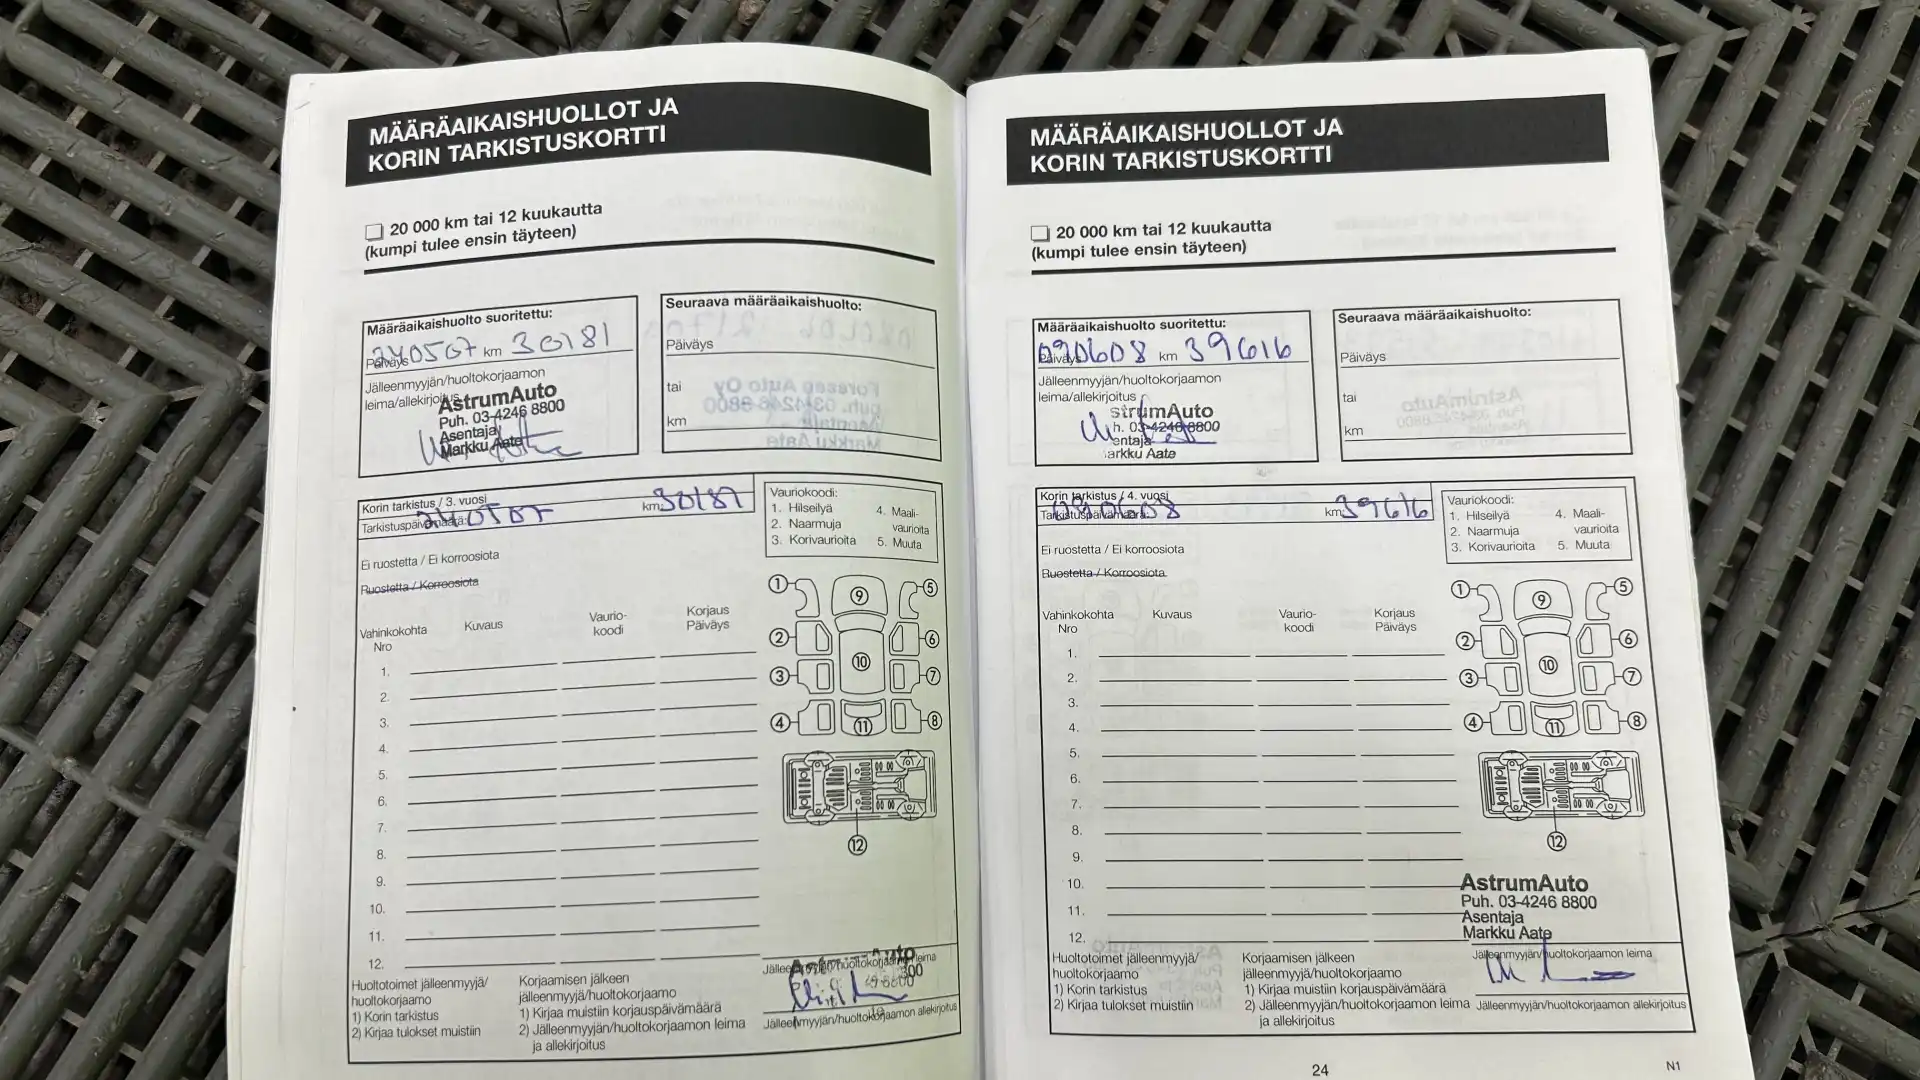 MÄÄRÄAIKAISHUOLLOT JA
KORIN TARKISTUSKORTTI
20 000 km tai 12 kuukautta
(kumpi tulee ensin täyteen)
Määräaikaishuolto suoritettu:
Päiväys 240507 km 30181
Jälleenmyyjän/huoltokorjaamon
leima/allekirjoitus
AstrumAuto
Puh. 03-4246 8800
Asentaja
Markku Aate
Seuraava määräaikaishuolto:
Päiväys
tai
km
Korin tarkistus / 3. vuosi
Tarkistuspäivämäärä: 240507 km 30181
Ei ruostetta / Ei korroosiota
Ruostetta / Korroosiota
Vauriokoodi:
1. Hilseilyä
2. Naarmuja
3. Korivaurioita
4. Maali-
vaurioita
5. Muuta
Vahinkokohta
Nro
Kuvaus
Vaurio-
koodi
Korjaus
Päiväys
1.
2.
3.
4.
5.
6.
7.
8.
9.
10.
11.
12.
1
2
3
4
5
6
7
8
9
10
11
12
Huoltotoimet jälleenmyyjä/
huoltokorjaamo
1) Korin tarkistus
2) Kirjaa tulokset muistiin
Korjaamisen jälkeen
jälleenmyyjä/huoltokorjaamo
1) Kirjaa muistiin korjauspäivämäärä
2) Jälleenmyyjän/huoltokorjaamon leima
ja allekirjoitus
Jälleenmyyjän/huoltokorjaamon leima
Jälleenmyyjän/huoltokorjaamon allekirjoitus
MÄÄRÄAIKAISHUOLLOT JA
KORIN TARKISTUSKORTTI
20 000 km tai 12 kuukautta
(kumpi tulee ensin täyteen)
Määräaikaishuolto suoritettu:
Päiväys 090608 km 39616
Jälleenmyyjän/huoltokorjaamon
leima/allekirjoitus
strumAuto
h. 03-4246 8800
entaja
arkku Aate
Seuraava määräaikaishuolto:
Päiväys
tai
km
Korin tarkistus / 4. vuosi
Tarkistuspäivämäärä: 090608 km 39616
Ei ruostetta / Ei korroosiota
Ruostetta / Korroosiota
Vauriokoodi:
1. Hilseilyä
2. Naarmuja
3. Korivaurioita
4. Maali-
vaurioita
5. Muuta
Vahinkokohta
Nro
Kuvaus
Vaurio-
koodi
Korjaus
Päiväys
1.
2.
3.
4.
5.
6.
7.
8.
9.
10.
11.
12.
1
2
3
4
5
6
7
8
9
10
11
12
AstrumAuto
Puh. 03-4246 8800
Asentaja
Markku Aate
Huoltotoimet jälleenmyyjä/
huoltokorjaamo
1) Korin tarkistus
2) Kirjaa tulokset muistiin
Korjaamisen jälkeen
jälleenmyyjä/huoltokorjaamo
1) Kirjaa muistiin korjauspäivämäärä
2) Jälleenmyyjän/huoltokorjaamon leima
ja allekirjoitus
Jälleenmyyjän/huoltokorjaamon leima
Jälleenmyyjän/huoltokorjaamon allekirjoitus
24
N1